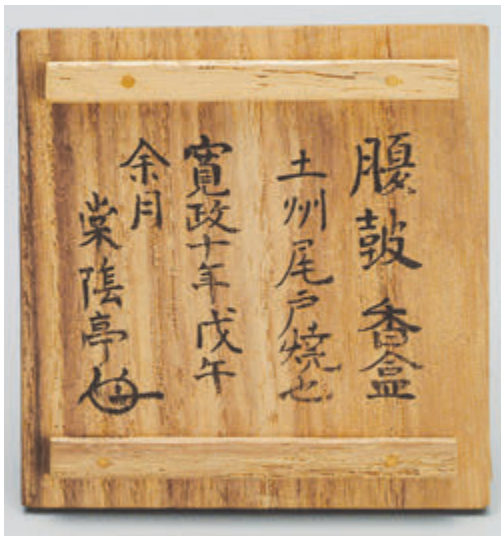 腹鼓 香盒
土州尾戸焼也
寛政十年戊午
余月
棠陰亭